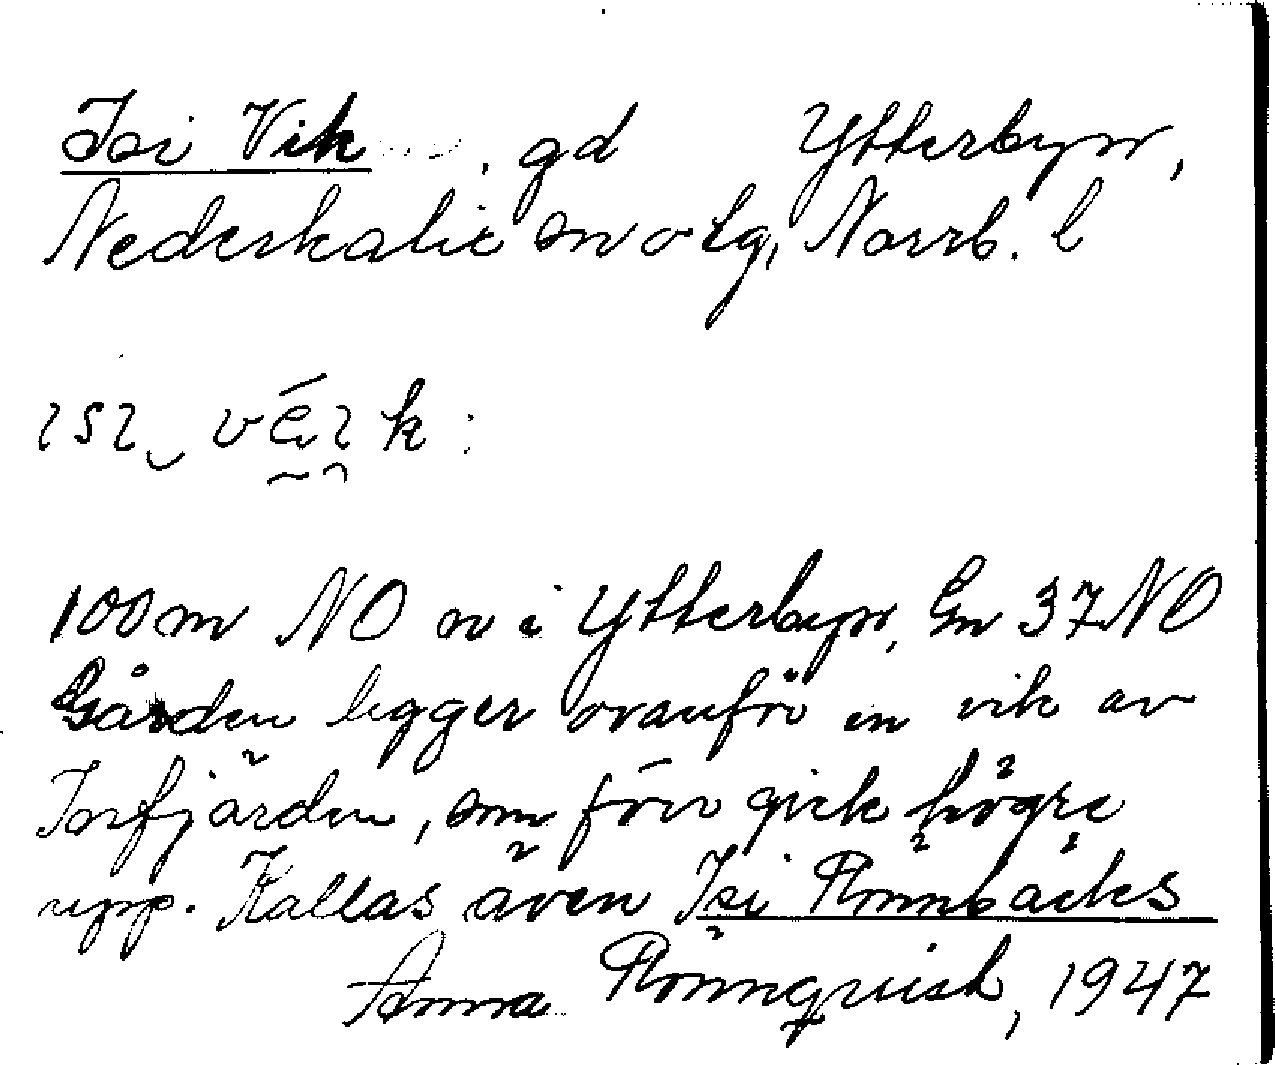 Isi Vik, gd Ytterbyn,
Nederkalix sn o tg, Norrb. l
ɪsɪ‿ véɪk:
100 m NO n i Ytterbyn, Gn 37 NO
Gården ligger ovanför en vik av
Torfjärden, som förr gick högre
upp. Kallas även Isi Rönnbäcks
Anna Rönnqvist, 1947